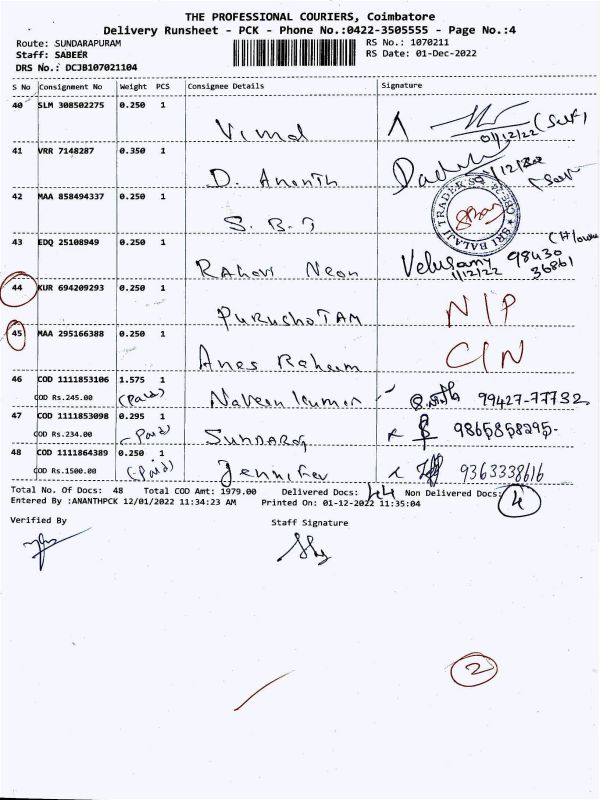 THE PROFESSIONAL COURIERS, Coimbatore
Delivery Runsheet - PCK - Phone No.:0422-3505555 - Page No.:4
Route: SUNDARAPURAM
RS No.: 1070211
Staff: SABEER
RS Date: 01-Dec-2022
DRS No.: DCJB107021104
S No Consignment No Weight PCS Consignee Details Signature
40 SLM 308502275 0.250 1
Vimal
01/12/22 (Self)
41 VRR 7148287 0.350 1
D. Ananth
42 MAA 858494337 0.250 1
S. B. T
SRI BALAJI TRADERS
43 EDQ 25108949 0.250 1
Velusamy 98430
1/12/22 36861
44 KUR 694209293 0.250 1
PURUSHOTAM
N/P
45 MAA 295166388 0.250 1
C/N
46 COD 1111853106 1.575 1
COD Rs.245.00 (Paid) Naveen kumar 99427-77732
47 COD 1111853098 0.295 1
COD Rs.234.00 (-Paid) 9865858295-
48 COD 1111864389 0.250 1
COD Rs.1500.00 (-Paid) Jennifer 9363338616
Total No. Of Docs: 48 Total COD Amt: 1979.00 Delivered Docs: 44 Non Delivered Docs: 4
Entered By :ANANTHPCK 12/01/2022 11:34:23 AM Printed On: 01-12-2022 11:35:04
Verified By Staff Signature
2